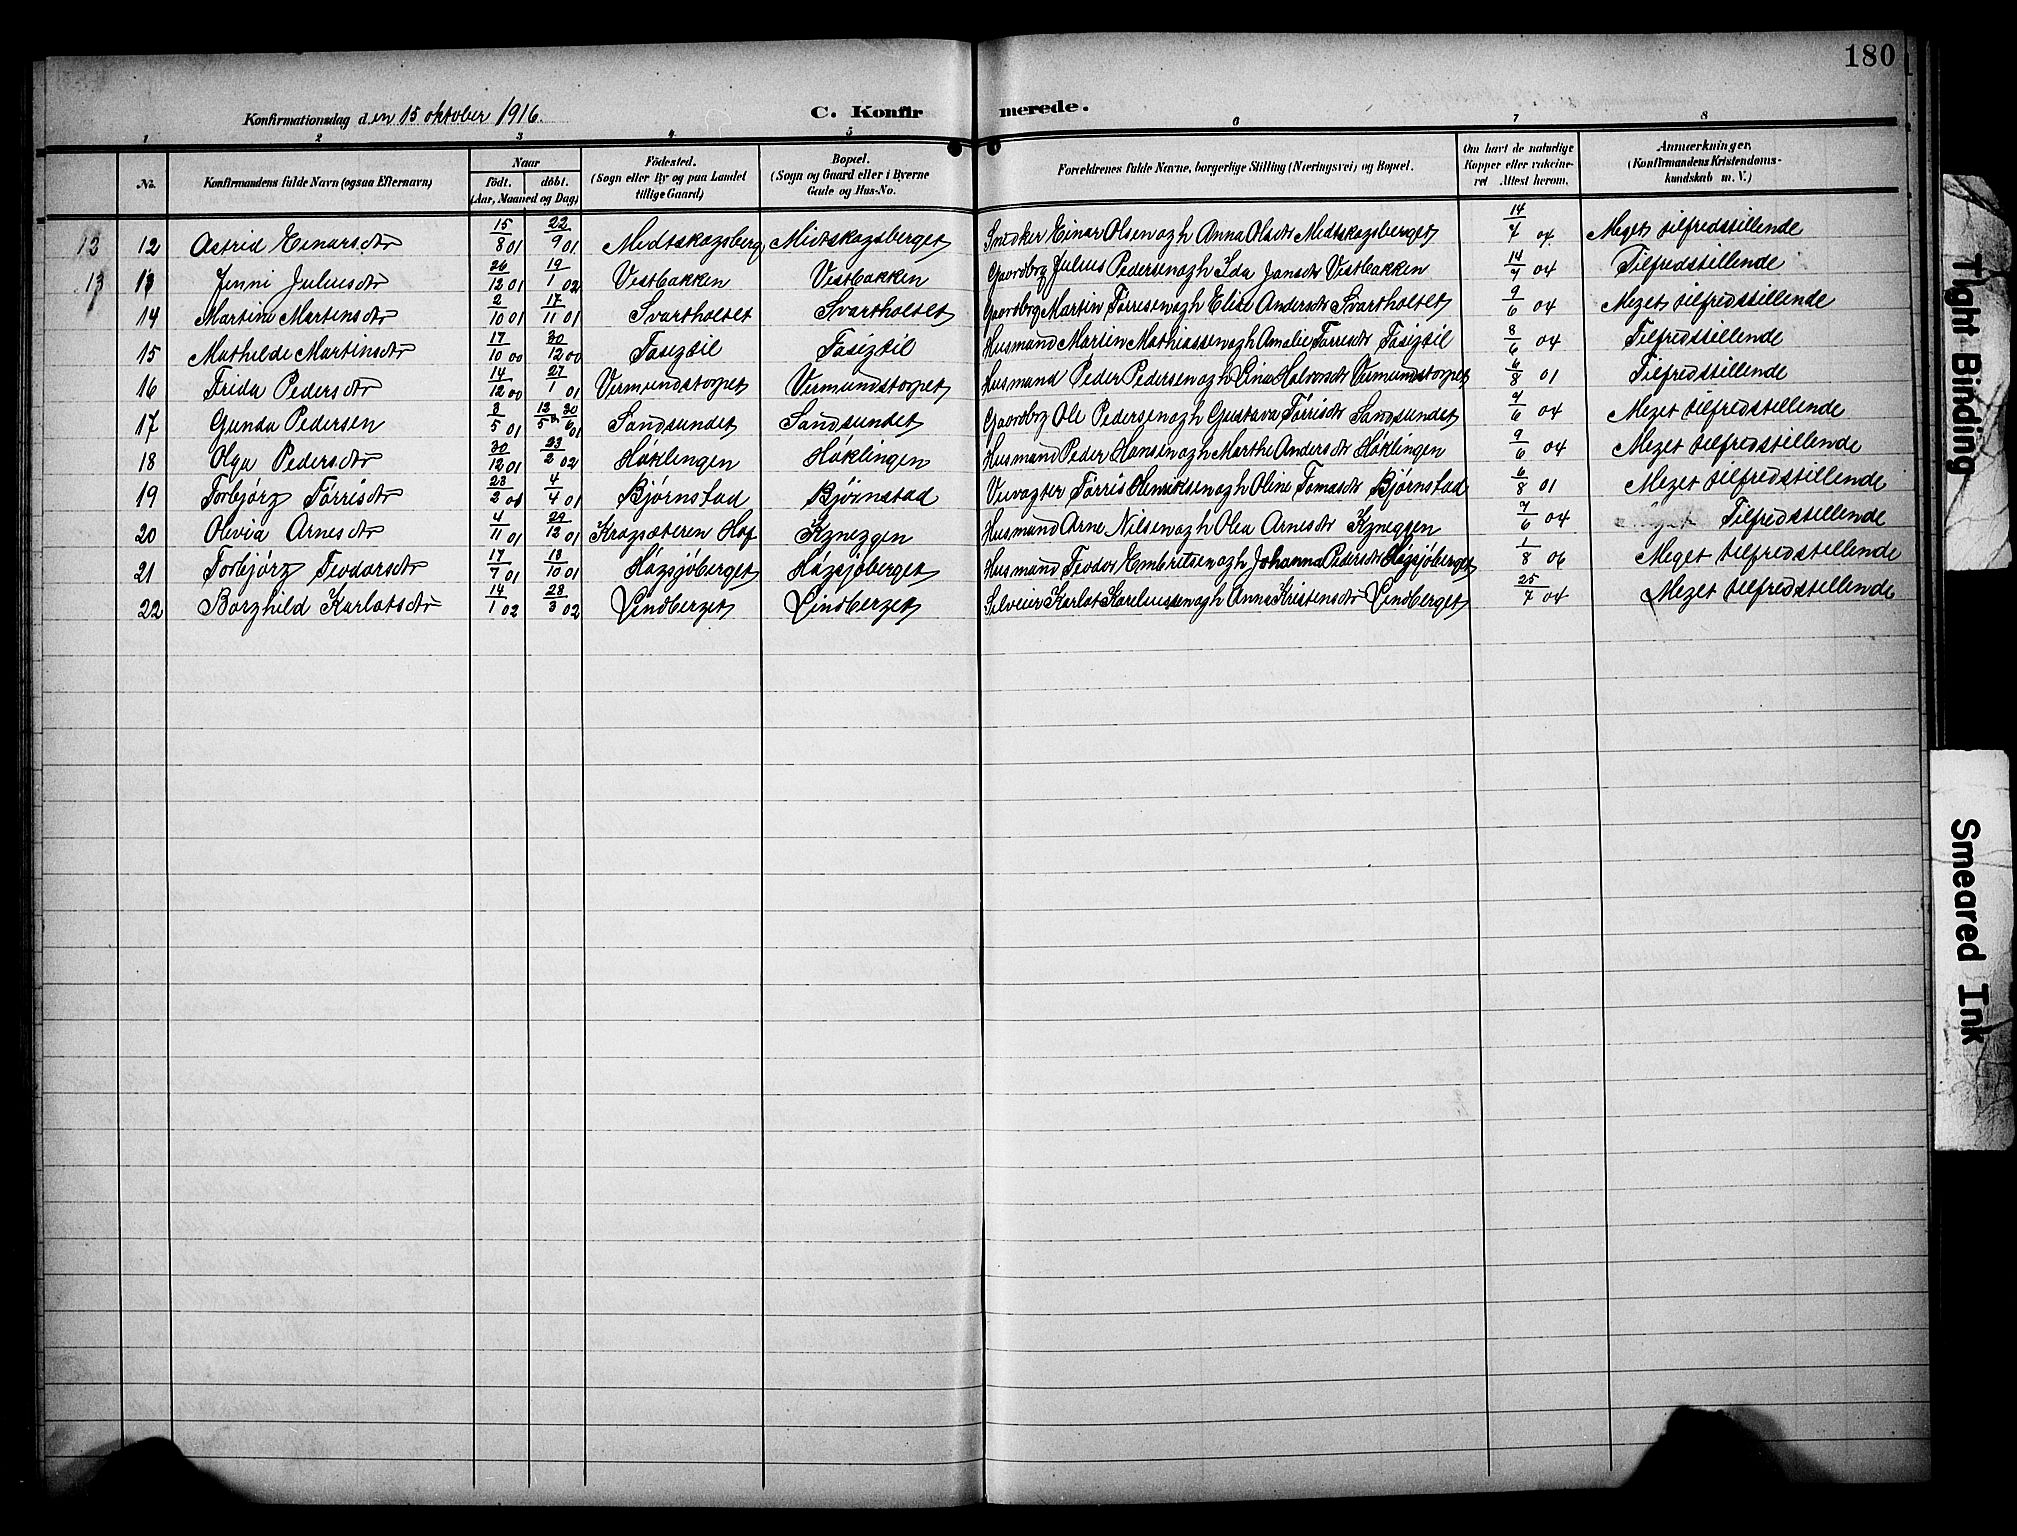 180
Konfirmationsdag den 15 oktober 1916.
C. Konfirmerede.
1 2 3 4 5 6 7 8
No. Konfirmandens fulde Navn (ogsaa Efternavn) Naar födt. döbt. (Aar, Maaned og Dag) Födested. (Sogn eller By og paa Landet tillige Gaard) Bopæl. (Sogn og Gaard eller i Byerne Gade og Hus-No. Forældrenes fulde Navne, borgerlige Stilling (Næringsvei) og Bopæl. Om havt de naturlige Kopper eller vakcineret Attest herom. Anmærkninger. (Konfirmandens Kristendomskundskab m. V.)
13 12 Astrid Einarsdtr 15/8 01 22/9 01 Midtskogsberg Midtskogsberget Snedker Einar Olsen og h Anna Olsdtr Midtskogsberget 14/7 04 Meget tilfredstillende
13 13 Jenni Juliusdtr 26/12 01 19/1 02 Vestbakken Vestbakken Gaardbrg Julius Pedersen og h Ida Jansdtr Vestbakken 14/7 04 Tilfredstillende
14 Martine Martinsdtr 2/10 01 17/11 01 Svartholtet Svartholtet Gaardbrg Martin Törresen og h Elise Andersdtr Svartholtet 9/6 04 Meget tilfredsstillende
15 Mathilde Martinsdtr 17/10 00 30/12 00 Husmand Martin Mathiassen og h Amalie Törresdtr 8/6 04 Tilfredstillende
16 Frida Pedersdtr 14/12 00 27/1 01 Vermundstorpet Vermundstorpet Husmand Peder Pedersen og h Eina Halvorsdtr Vermundstorpet 6/8 01 Tilfredstillende
17 Gunda Pedersen 3/5 01 12/5 30/6 01 Sandsundet Sandsundet Gaardbrg Ole Pedersen og h Gustava Törrisdtr Sandsundet 4/6 04 Meget tilfredstillende
18 Olga Pedersdtr 30/12 01 23/2 02 Höklingen Höklingen Husmand Peder Hansen og h Marthe Andersdtr Höklingen 9/6 04 Meget tilfredstillende
19 Torbjörg Törrisdtr 23/2 01 4/4 01 Björnstad Björnstad Veivogter Törris Henriksen og h Oline Tomasdtr Björnstad 6/8 01 Meget tilfredstillende
20 Olivia Arnesdtr 4/11 01 22/12 01 Kragsæteren Hof Kjneggen Husmand Arne Nilsen og h Olea Arnesdtr Kjneggen 7/6 04 Tilfredstillende
21 Torbjörg Teodorsdtr 17/7 01 13/10 01 Högsjöberget Högsjöberget Husmand Teodor Embretsen og h Johanna Pedersdtr Högsjöberget 1/8 06 Meget tilfredstillende
22 Borghild Karlotsdtr 14/1 02 23/3 02 Lindberget Lindberget Selveier Karlot Kareliussen og h Anna Kristensdtr Lindberget 25/7 04 Meget tilfredstillende
Tight Binding
Smeared Ink